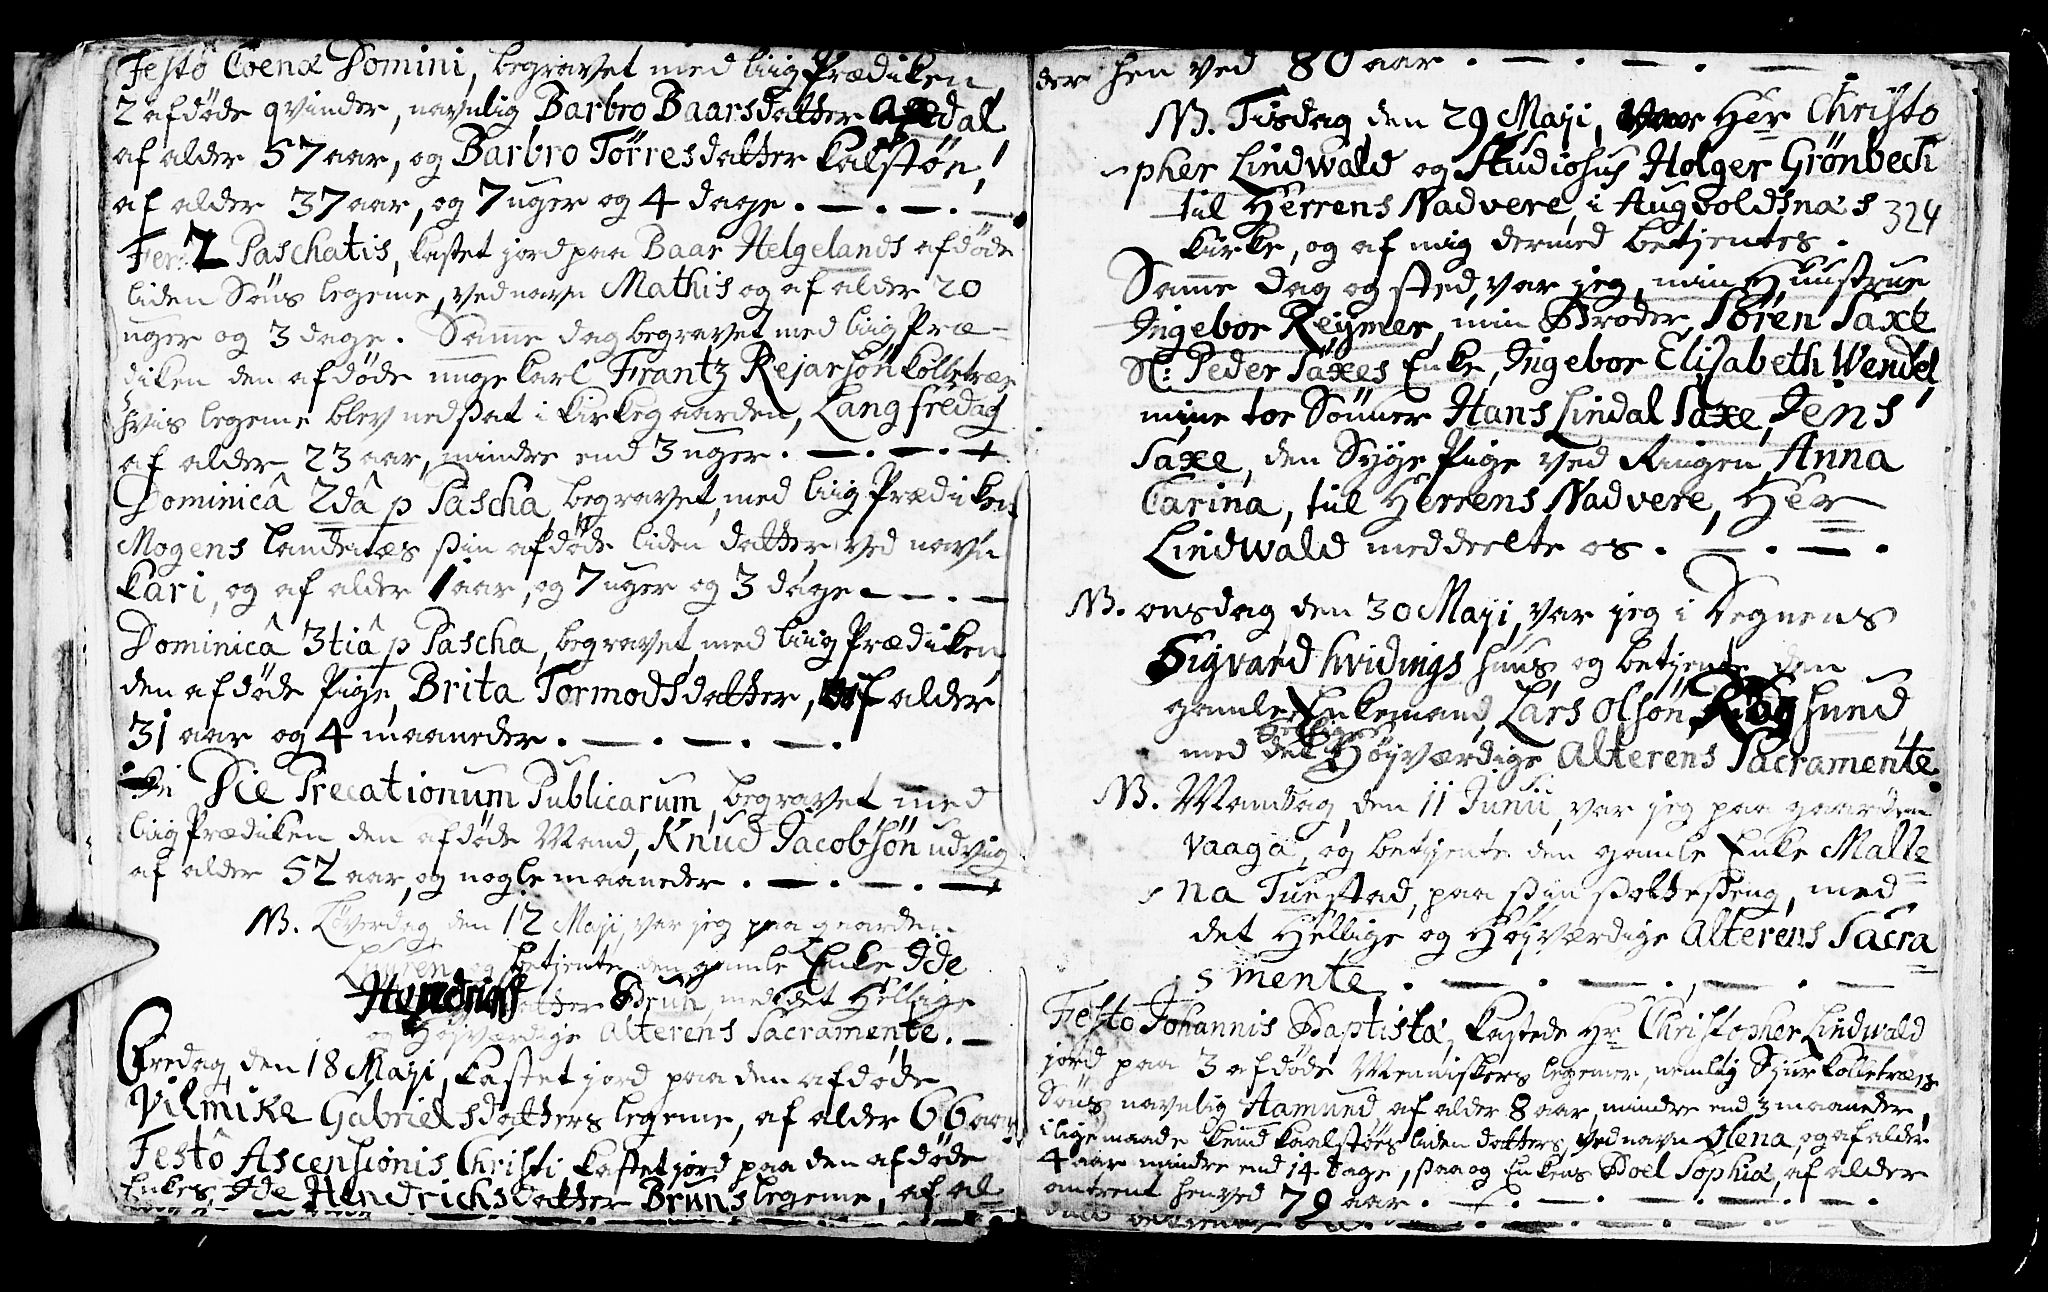 Festô Coenæ Domini, begravet med liig Prædiken
2 afdøde qvinder, navnlig Barbro Baarsdatter dal
af alder 57 aar, og Barbro Törresdatter Kalstøn,
af alder 37 aar, og 7 uger og 4 dage. —. —. —.
Fer: 2 Paschatis, kastet jord paa Baar Helgelands afdøde
liden Søns legeme, ved navn Mathis og af alder 20
uger og 3 dage. Same dag begravet med liig Præ-
diken den afdøde unge karl Frantz Rejarsön Kolletvæs
hvis legeme blev nedsat i kirkegaarden, Langfredag
af alder 23 aar, mindre end 3 uger. —. —. —
Dominicâ 2dâ p Pascha, begravet, med liig Prædiken,
Mogens Landenæs sin afdøde liden datter, ved navn
Kari, og af alder 1 aar, og 7 uger og 3 dage — —. —
Dominicâ 3tiâ p Pascha, begravet, med liig Prædiken
den afdøde Pige, Brita Tormodsdatter, af alder
31 aar og 4 maaneder. —. —. —.
Die Precationum Publicarum, begravet med
liig Prædiken, den afdøde Mand, Knud Jacobsön udvig
af alder 52 aar, og nogle maaneder. —. —. —
NB. Løverdag, den 12 Maji, var jeg paa gaarden
og betjente den gamle Enke Ide
Hendrichsdatter Brun, med det Hellige
og Højværdige Alterens Sacramente. —
Fredag, den 18 Maji, kastet jord paa den afdøde
Vilmike Gabrielsdatters legeme, af alder 66 aar
Festô Ascensionis Christi kastet jord paa den afdøde
Enkes Ide Hendrichsdatter Bruns legeme, af al
der hen ved 80 aar. —. —. —. —.
NB. Tisdag, den 29 Maji, var Her Christo
-pher Lindwald og Studiosus Holger Grönbech
til Herrens Nadvere, i Augvoldsnæs
324
kirke, og af mig dermed betjentes.
Same dag og sted, var jeg, min Huustrue
Ingebor Reymer, min Broder, Sören Saxe
Sl: Peder Saxes Enke, Ingebor Elisabeth Wendel,
mine toe Sønner Hans Lindal Saxe, Jens
Saxe, den Syge Pige ved Ringen, Anna
Carina, til Herrens Nadvere, Her
Lindwald meddeelte os. —. —.
NB. onsdag, den 30 Maji, var jeg i Degnens
Sigvard Hvidings huus, og betjente den
gamle Enkemand, Lars Olsøn sund
Hellige
med det Højværdige Alterens Sacramente.
NB. Mandag, den 11 Junii, var jeg paa gaarden
Vaaga, og betjente den gamle Enke Malle
na Tuestad, paa sin sotteseng, med
det Hellige og Højværdige Alterens Sacra
mente. —. —. —. —
Festo Johannis Baptistæ, kastede Hr Christopher Lindwald
jord paa 3 afdøde Menniskers legemer, nemlig Sjur Kolletvæds
Søns, navnlig Aamund, af alder 8 aar, mindre end 3 maaneder,
i lige maade Knud Kaalstøes liden datters, ved navn Olena, og af alder
4 aar mindre end 14 dage, saa og Enkens Boel Sophiæ, af alder
omtrent henved 79 aar. —. —. —. —. —.